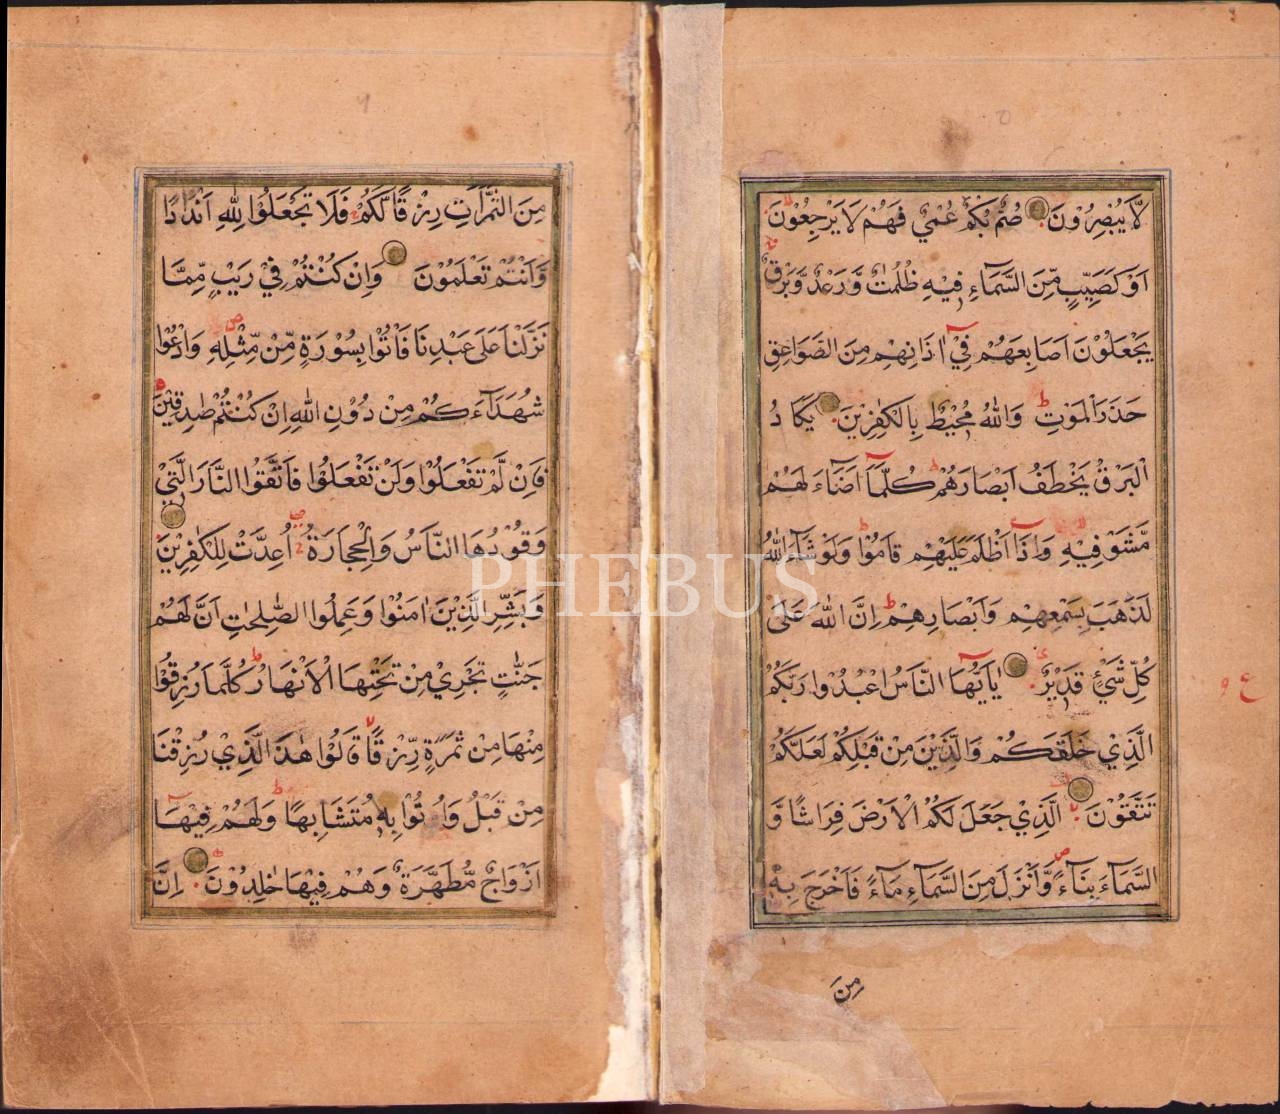 لَّا يُبْصِرُوْنَ صُمٌّ بُكْمٌ عُمْيٌ فَهُمْ لَا يَرْجِعُوْنَ
اَوْ كَصَيِّبٍ مِّنَ السَّمَآءِ فِيْهِ ظُلُمٰتٌ وَّرَعْدٌ وَّبَرْقٌ
يَجْعَلُوْنَ اَصَابِعَهُمْ فِيْٓ اٰذَانِهِمْ مِنَ الصَّوَاعِقِ
حَذَرَ الْمَوْتِ ط وَاللّٰهُ مُحِيْطٌ بِالْكٰفِرِيْنَ يَكَادُ
الْبَرْقُ يَخْطَفُ اَبْصَارَهُمْ ط كُلَّمَآ اَضَآءَ لَهُمْ
مَّشَوْ فِيْهِ وَاِذَآ اَظْلَمَ عَلَيْهِمْ قَامُوْا ط وَلَوْ شَآءَ اللّٰهُ
لَذَهَبَ بِسَمْعِهِمْ وَاَبْصَارِهِمْ ط اِنَّ اللّٰهَ عَلٰى
كُلِّ شَيْءٍ قَدِيْرٌ يٰٓاَيُّهَا النَّاسُ اعْبُدُوْا رَبَّكُمُ
الَّذِيْ خَلَقَكُمْ وَالَّذِيْنَ مِنْ قَبْلِكُمْ لَعَلَّكُمْ
تَتَّقُوْنَ الَّذِيْ جَعَلَ لَكُمُ الْاَرْضَ فِرَاشًا وَّ
السَّمَآءَ بِنَآءً ص وَّاَنْزَلَ مِنَ السَّمَآءِ مَآءً فَاَخْرَجَ بِهٖ
مِنَ
ع
مِنَ الثَّمَرَاتِ رِزْقًا لَّكُمْ فَلَا تَجْعَلُوْا لِلّٰهِ اَنْدَادًا
وَّاَنْتُمْ تَعْلَمُوْنَ وَاِنْ كُنْتُمْ فِيْ رَيْبٍ مِّمَّا
نَزَّلْنَا عَلٰى عَبْدِنَا فَأْتُوْا بِسُوْرَةٍ مِّنْ مِّثْلِهٖ ص وَادْعُوْا
شُهَدَآءَكُمْ مِنْ دُوْنِ اللّٰهِ اِنْ كُنْتُمْ صٰدِقِيْنَ
فَاِنْ لَّمْ تَفْعَلُوْا وَلَنْ تَفْعَلُوْا فَاتَّقُوا النَّارَ الَّتِيْ
وَقُوْدُهَا النَّاسُ وَالْحِجَارَةُ اُعِدَّتْ لِلْكٰفِرِيْنَ
وَبَشِّرِ الَّذِيْنَ اٰمَنُوْا وَعَمِلُوا الصّٰلِحٰتِ اَنَّ لَهُمْ
جَنّٰتٍ تَجْرِيْ مِنْ تَحْتِهَا الْاَنْهَارُ ط كُلَّمَا رُزِقُوْا
مِنْهَا مِنْ ثَمَرَةٍ رِّزْقًا لا قَالُوْا هٰذَا الَّذِيْ رُزِقْنَا
مِنْ قَبْلُ وَاُتُوْا بِهٖ مُتَشَابِهًا ط وَلَهُمْ فِيْهَآ
اَزْوَاجٌ مُّطَهَّرَةٌ وَّهُمْ فِيْهَا خٰلِدُوْنَ اِنَّ
PHEBUS